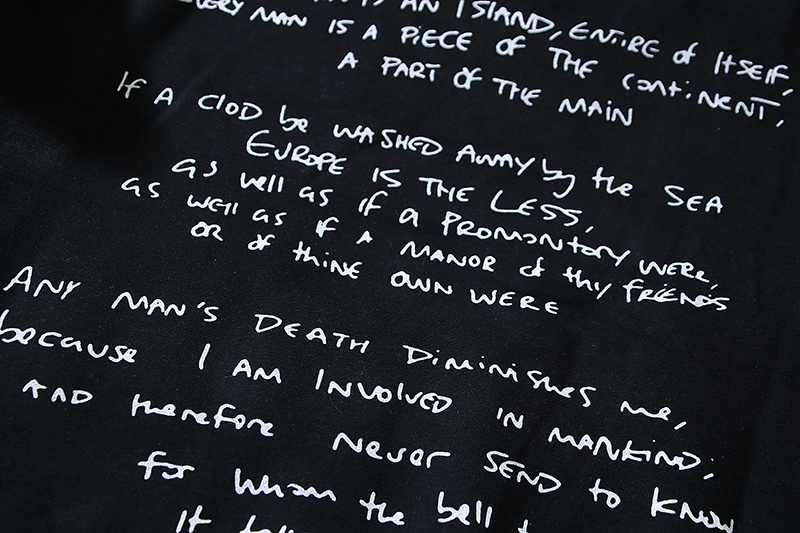 IS AN ISLAND, ENTIRE of ITSELF,
EVERY MAN IS A PIECE OF THE CONTINENT,
A PART OF THE MAIN
If A CLOD be WASHED AWAY by the SEA
EUROPE IS THE LESS,
as well as if a PROMONTORY WERE,
as well as if A MANOR of thy friENDS
OR of thine OWN WERE
ANY MAN'S DEATH Diminishes me,
because I AM INVOLVED IN MANKIND;
AND therefore Never SEND to KNOW
for whom the bell
It